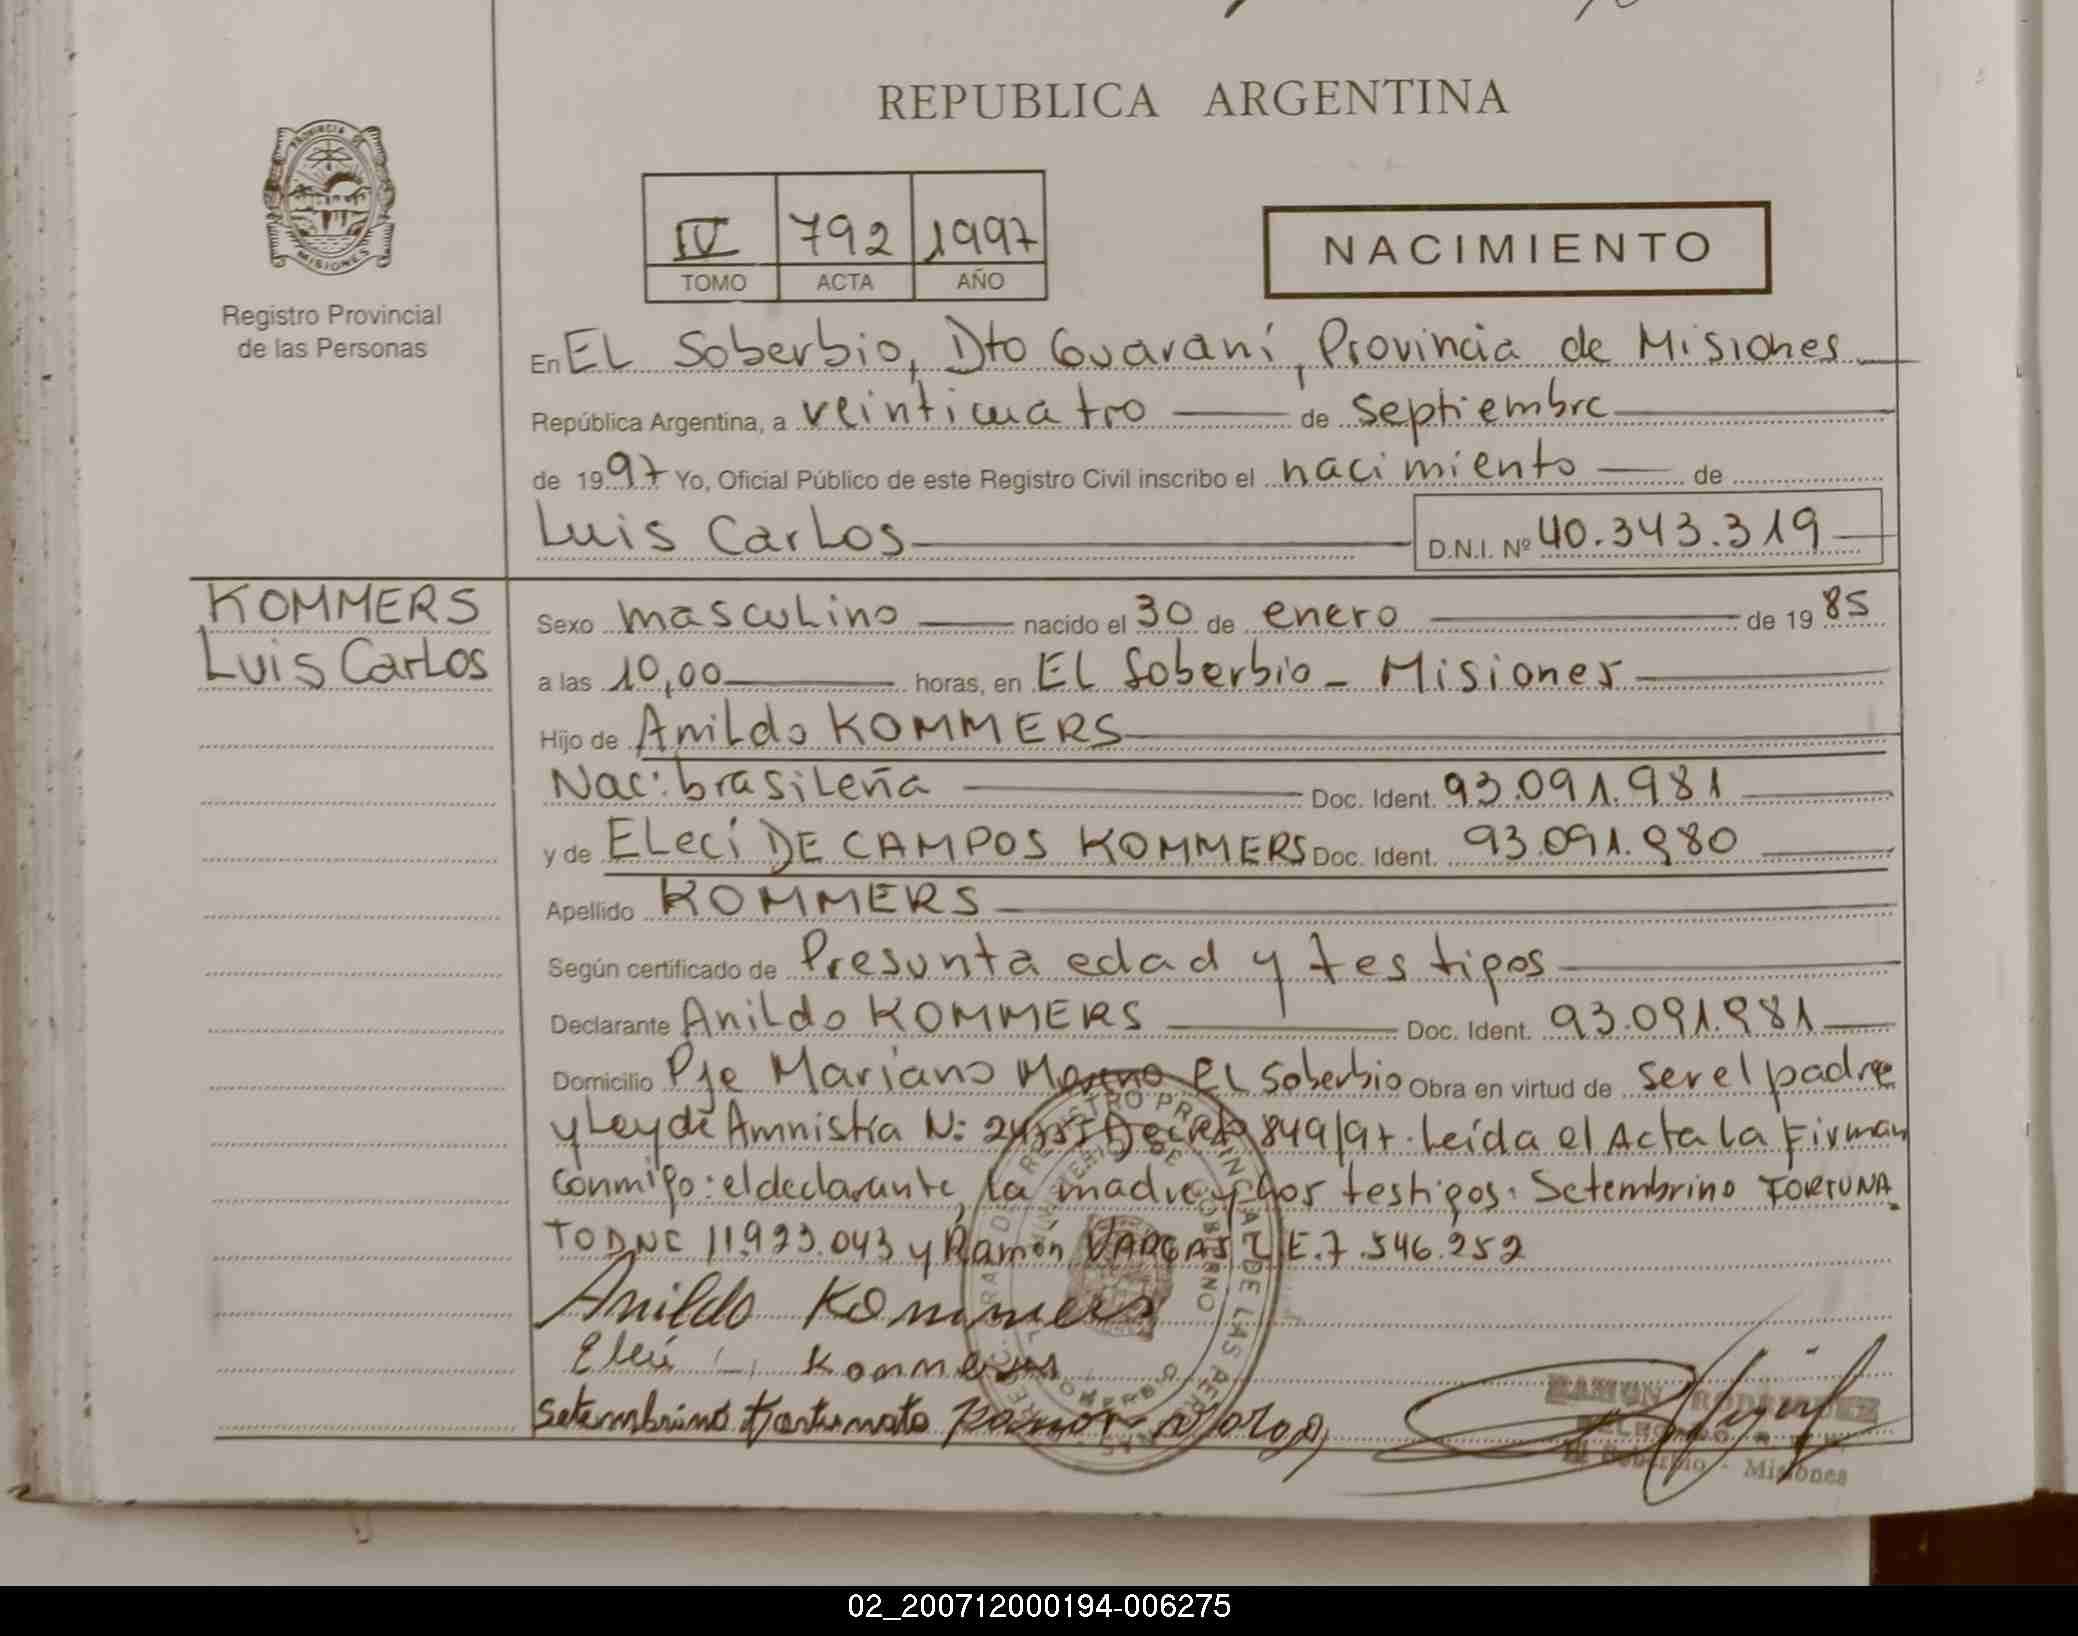 REPUBLICA ARGENTINA
PROVINCIA DE
MISIONES
Registro Provincial
de las Personas
IV 792 1997
TOMO ACTA AÑO
NACIMIENTO
En EL Soberbio, Dto Guaraní, Provincia de Misiones
República Argentina, a veinticuatro de septiembre
de 1997 Yo, Oficial Público de este Registro Civil inscribo el nacimiento de
Luis Carlos D.N.I. Nº 40.343.319
KOMMERS
Luis Carlos
Sexo masculino nacido el 30 de enero de 19 85
a las 10,00 horas, en EL Soberbio - Misiones
Hijo de Anildo KOMMERS
Nac: brasileña Doc. Ident. 93.091.981
y de ELeci DE CAMPOS KOMMERS Doc. Ident. 93.091.980
Apellido KOMMERS
Según certificado de Presunta edad y testigos
Declarante Anildo KOMMERS Doc. Ident. 93.091.981
Domicilio Pje Mariano Moreno EL Soberbio Obra en virtud de ser el padre
y Ley de Amnistía N: Decreto 849/97. Leída el Acta la Firman
conmigo: el declarante, la madre y los testigos: Setembrino FORTUNA
TO DNI 11.923.043 y Ramón VARGAS L.E. 7.546.252
Anildo Kommers
Eleci Kommers
Setembrino Fortunato Ramon Varga
RAMON RODRIGUEZ
El Soberbio - Misiones
02_200712000194-006275